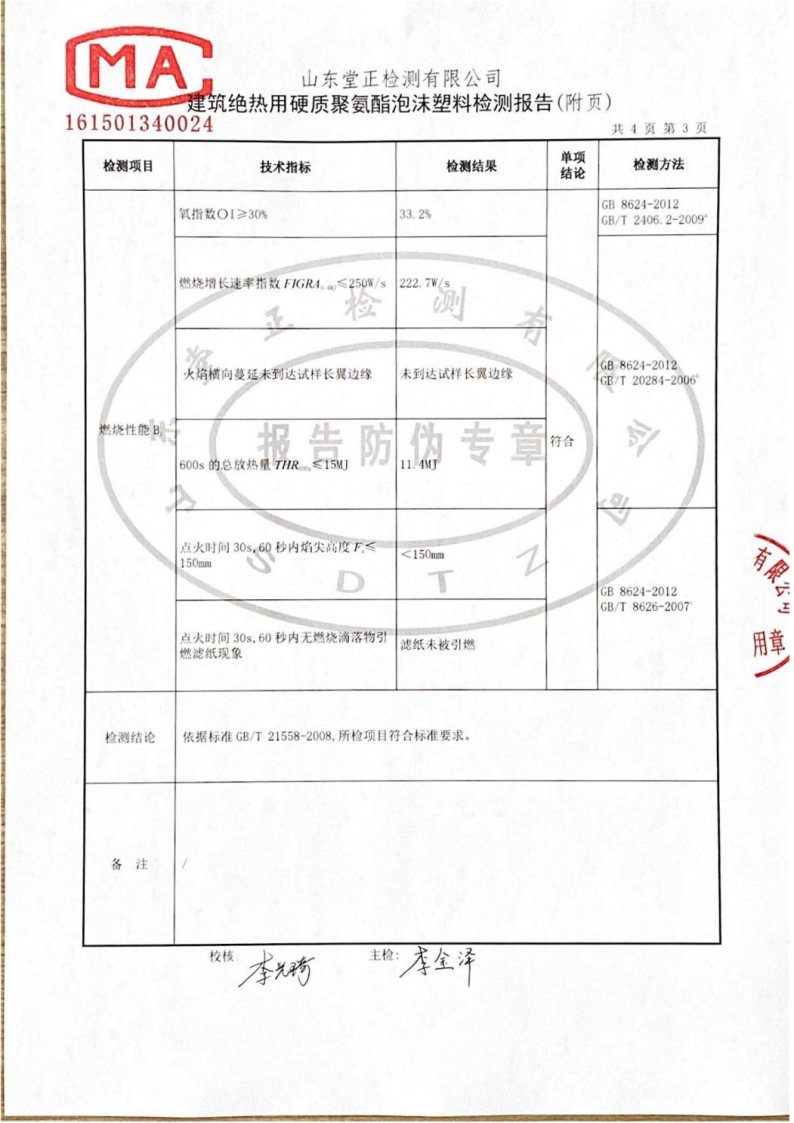 MA
161501340024
山东堂正检测有限公司
建筑绝热用硬质聚氨酯泡沫塑料检测报告(附页)
共 4 页 第 3 页
检测项目
技术指标
检测结果
单项
结论
检测方法
燃烧性能 B₁
氧指数OI≥30%
33.2%
符合
GB 8624-2012
GB/T 2406.2-2009
燃烧增长速率指数 FIGRA ≤250W/s
222.7W/s
GB 8624-2012
GB/T 20284-2006
火焰横向蔓延未到达试样长翼边缘
未到达试样长翼边缘
600s 的总放热量 THR ≤15MJ
11.4MJ
点火时间 30s,60 秒内焰尖高度 Fs≤
150mm
<150mm
GB 8624-2012
GB/T 8626-2007
点火时间 30s,60 秒内无燃烧滴落物引
燃滤纸现象
滤纸未被引燃
检测结论
依据标准 GB/T 21558-2008,所检项目符合标准要求。
备 注
/
校核
主检:
李全泽
山东堂正检测有限公司
报告防伪专章
SDTZ
有限公司
用章